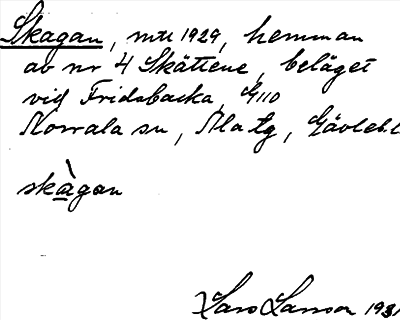 Skagan, mtu 1929, hemman
av nr 4 Skättene, beläget
vid Fridsbacka, G110
Norrala sn, Ala tg, Gävleb.l
skàgan
Lars Larsson 1931